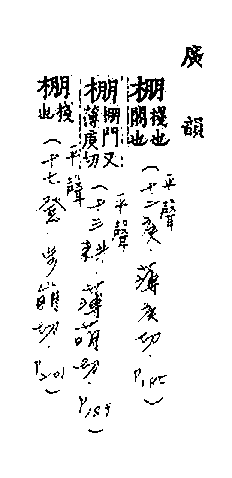 廣韻
棚棧也閣也(平聲十二庚.薄庚切.P185)
棚棚閣又薄庚切(平聲十三耕.薄萌切.P189)
棚棧也(平聲十七登.步崩切.P201)